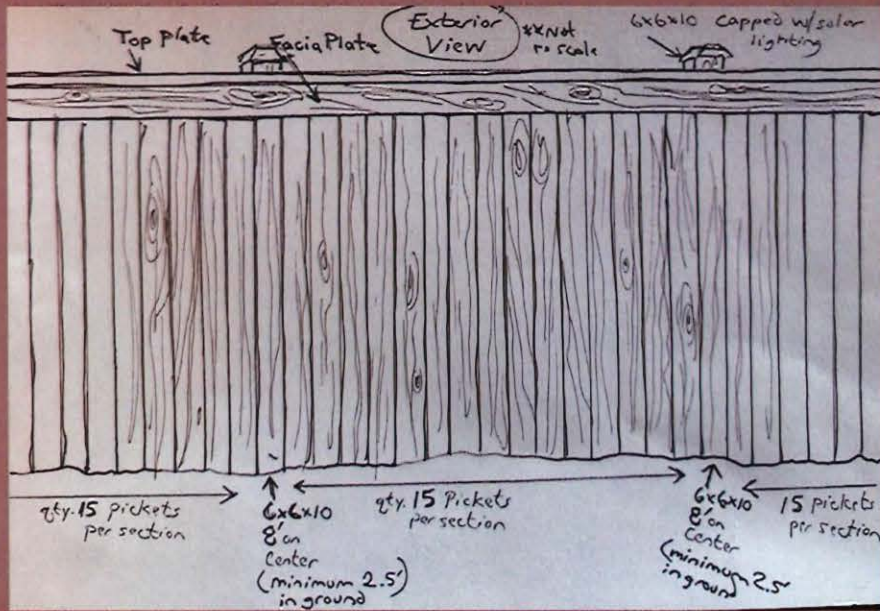 Top Plate
Facia Plate
Exterior
View
**Not
to scale
6x6x10 capped w/solar
lighting
qty. 15 Pickets
per section
6x6x10
8' on
Center
(minimum 2.5')
in ground
qty. 15 Pickets
per section
6x6x10
8' on
Center
(minimum 2.5'
in ground
15 Pickets
per section